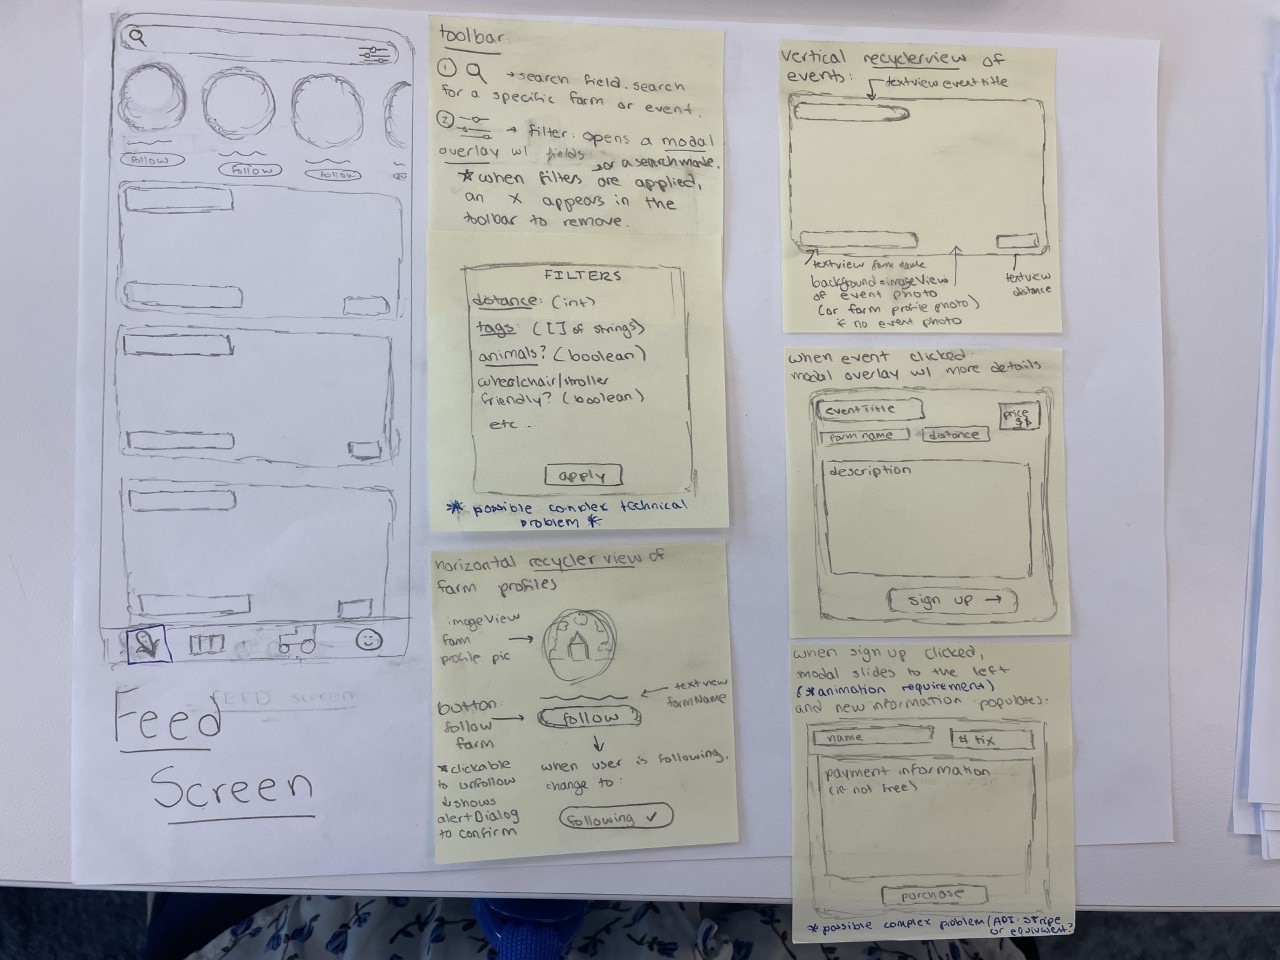 follow
follow
follow
FEED screen
Feed
Screen
toolbar
① → search field. search
for a specific farm or event.
② → filter. opens a modal
overlay w/ fields or a searchmode.
*when filters are applied,
an x appears in the
toolbar to remove.
FILTERS
distance: (int)
tags: ([] of strings)
animals? (boolean)
wheelchair/stroller
friendly? (boolean)
etc .
apply
* possible complex technical
problem *
horizontal recycler view of
farm profiles
imageView
farm
profile pic
textview
farmName
button:
follow
farm
follow ?
*clickable
to unfollow
↓shows
alertDialog
to confirm
when user is following,
change to:
following ✓
vertical recyclerview of
events:
textview event title
textview farm name
background=imageView
of event photo
(or farm profile photo)
if no event photo
textview
distance
when event clicked
modal overlay w/ more details
event Title
price
$$
farm name
distance
description
sign up →
when sign up clicked,
modal slides to the left
(*animation requirement)
and new information populates:
name
# tix
payment information
(if not free)
purchase
*possible complex problem (API: Stripe
or equivalent?